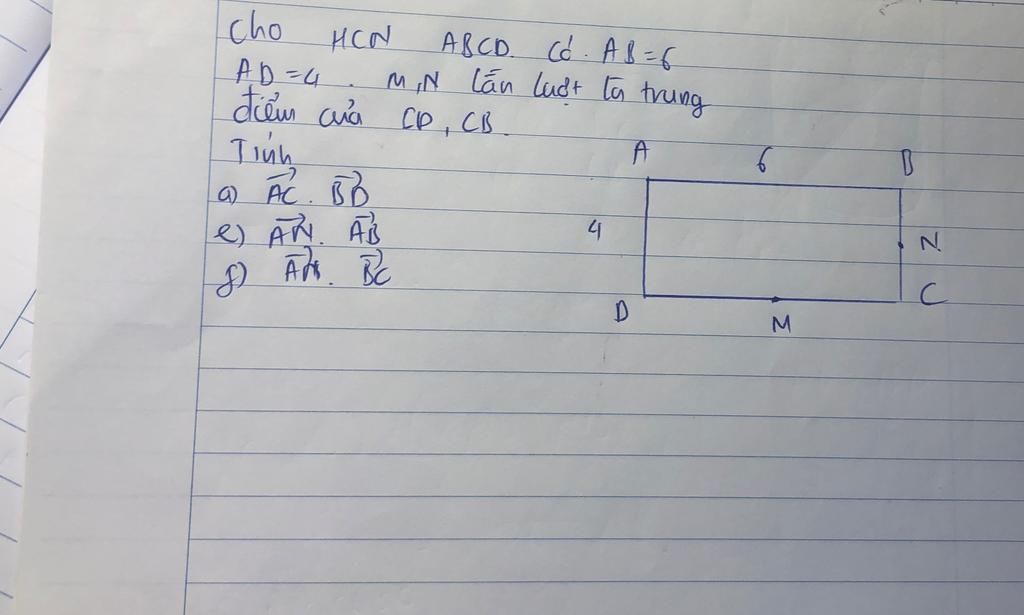 Cho HCN ABCD. Có. AB=6
AD=4. M,N lần lượt là trung
điểm của CD, CB.
Tính
a) AC. BD
e) AN. AB
f) BC
A 6 B
4 N
D M C